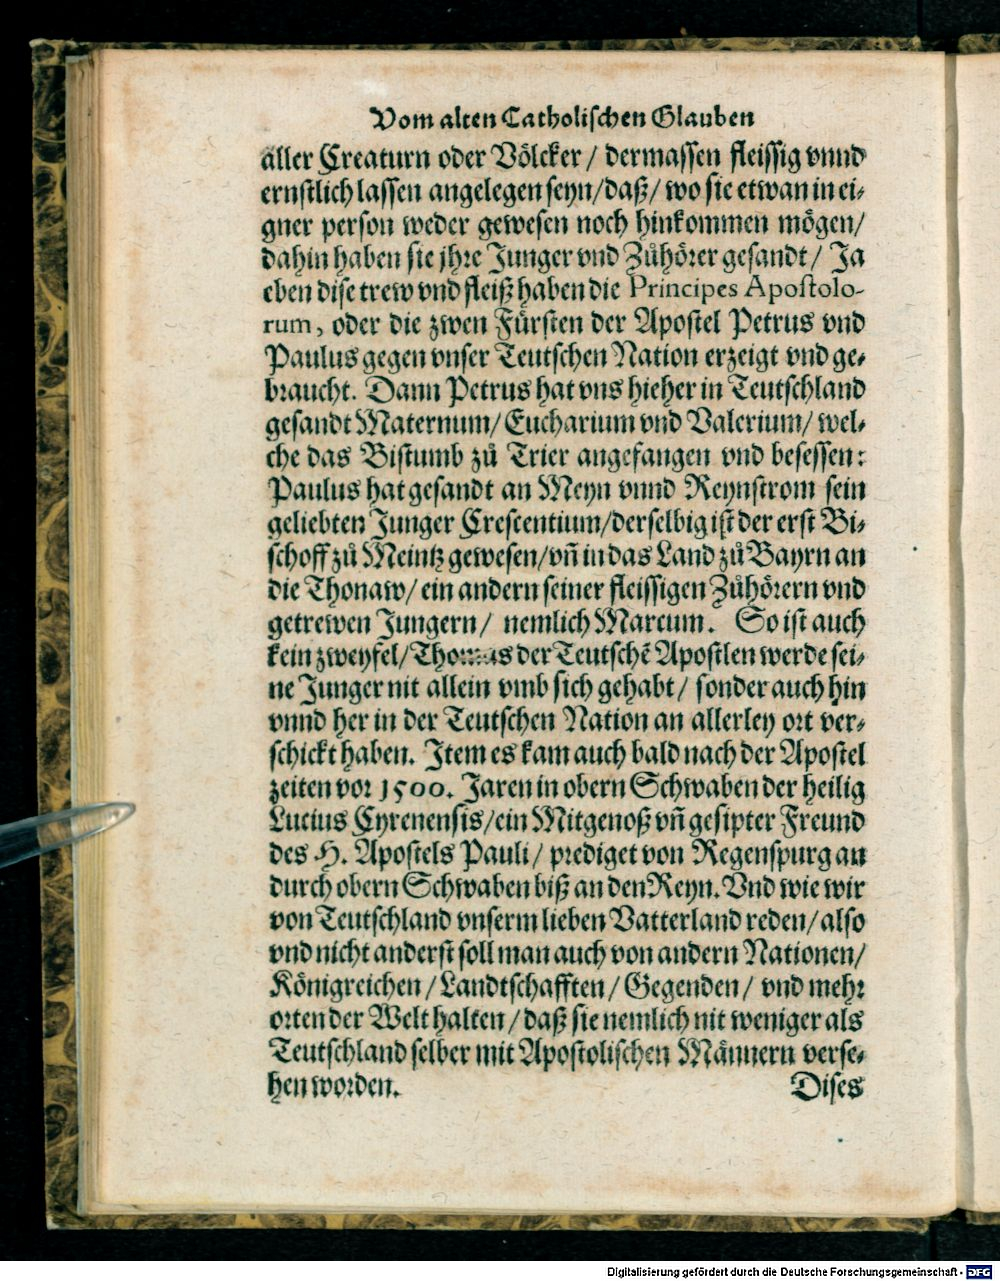 Vom alten Catholischen Glauben
aller Creaturn oder Völcker / dermassen fleissig vnnd
ernstlich lassen angelegen seyn/daß/ wo sie etwan in ei-
gner person weder gewesen noch hinkommen mögen/
dahin haben sie jhre Junger vnd Zůhörer gesandt/ Ja
eben dise trew vnd fleiß haben die Principes Apostolo-
rum, oder die zwen Fürsten der Apostel Petrus vnd
Paulus gegen vnser Teutschen Nation erzeigt vnd ge-
braucht. Dann Petrus hat vns hieher in Teutschland
gesandt Maternum/ Eucharium vnd Valerium/ wel-
che das Bistumb zů Trier angefangen vnd besessen:
Paulus hat gesandt an Meyn vnnd Reynstrom sein
geliebten Junger Crescentium/derselbig ist der erst Bi-
schoff zů Meintz gewesen/vñ in das Land zů Bayrn an
die Thonaw/ ein andern seiner fleissigen Zůhörern vnd
getrewen Jungern/ nemlich Marcum. So ist auch
kein zweyfel/Thomas der Teutschē Apostlen werde sei-
ne Junger nit allein vmb sich gehabt/ sonder auch hin
vnnd her in der Teutschen Nation an allerley ort ver-
schickt haben. Item es kam auch bald nach der Apostel
zeiten vor 1500. Jaren in obern Schwaben der heilig
Lucius Cyrenensis/ein Mitgenoß vñ gesipter Freund
des H. Apostels Pauli/ prediget von Regenspurg an
durch obern Schwaben biß an den Reyn. Vnd wie wir
von Teutschland vnserm lieben Vatterland reden/also
vnd nicht anderst soll man auch von andern Nationen/
Königreichen/Landtschafften/Gegenden/ vnd mehr
orten der Welt halten/daß sie nemlich nit weniger als
Teutschland selber mit Apostolischen Männern verse-
hen worden. Dises
Digitalisierung gefördert durch die Deutsche Forschungsgemeinschaft - DFG